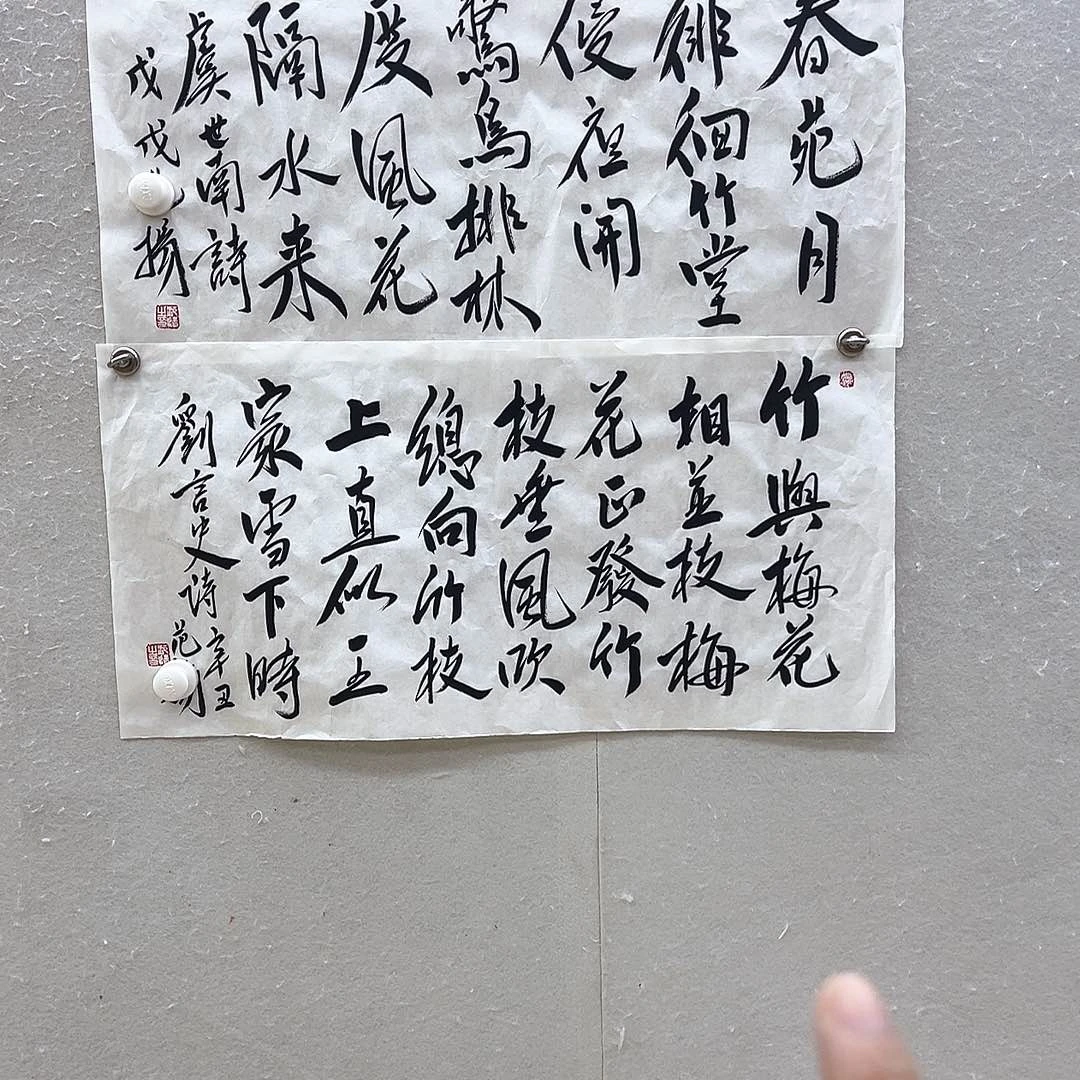 春苑月
徘徊竹堂
侵夜開
驚鳥排林
度風花
隔水来
虞世南詩
戊戌 揚
竹與梅花
相並枝梅
花正發竹
枝垂風吹
總向竹枝
上直似王
家雪下時
劉言史詩辛丑
范